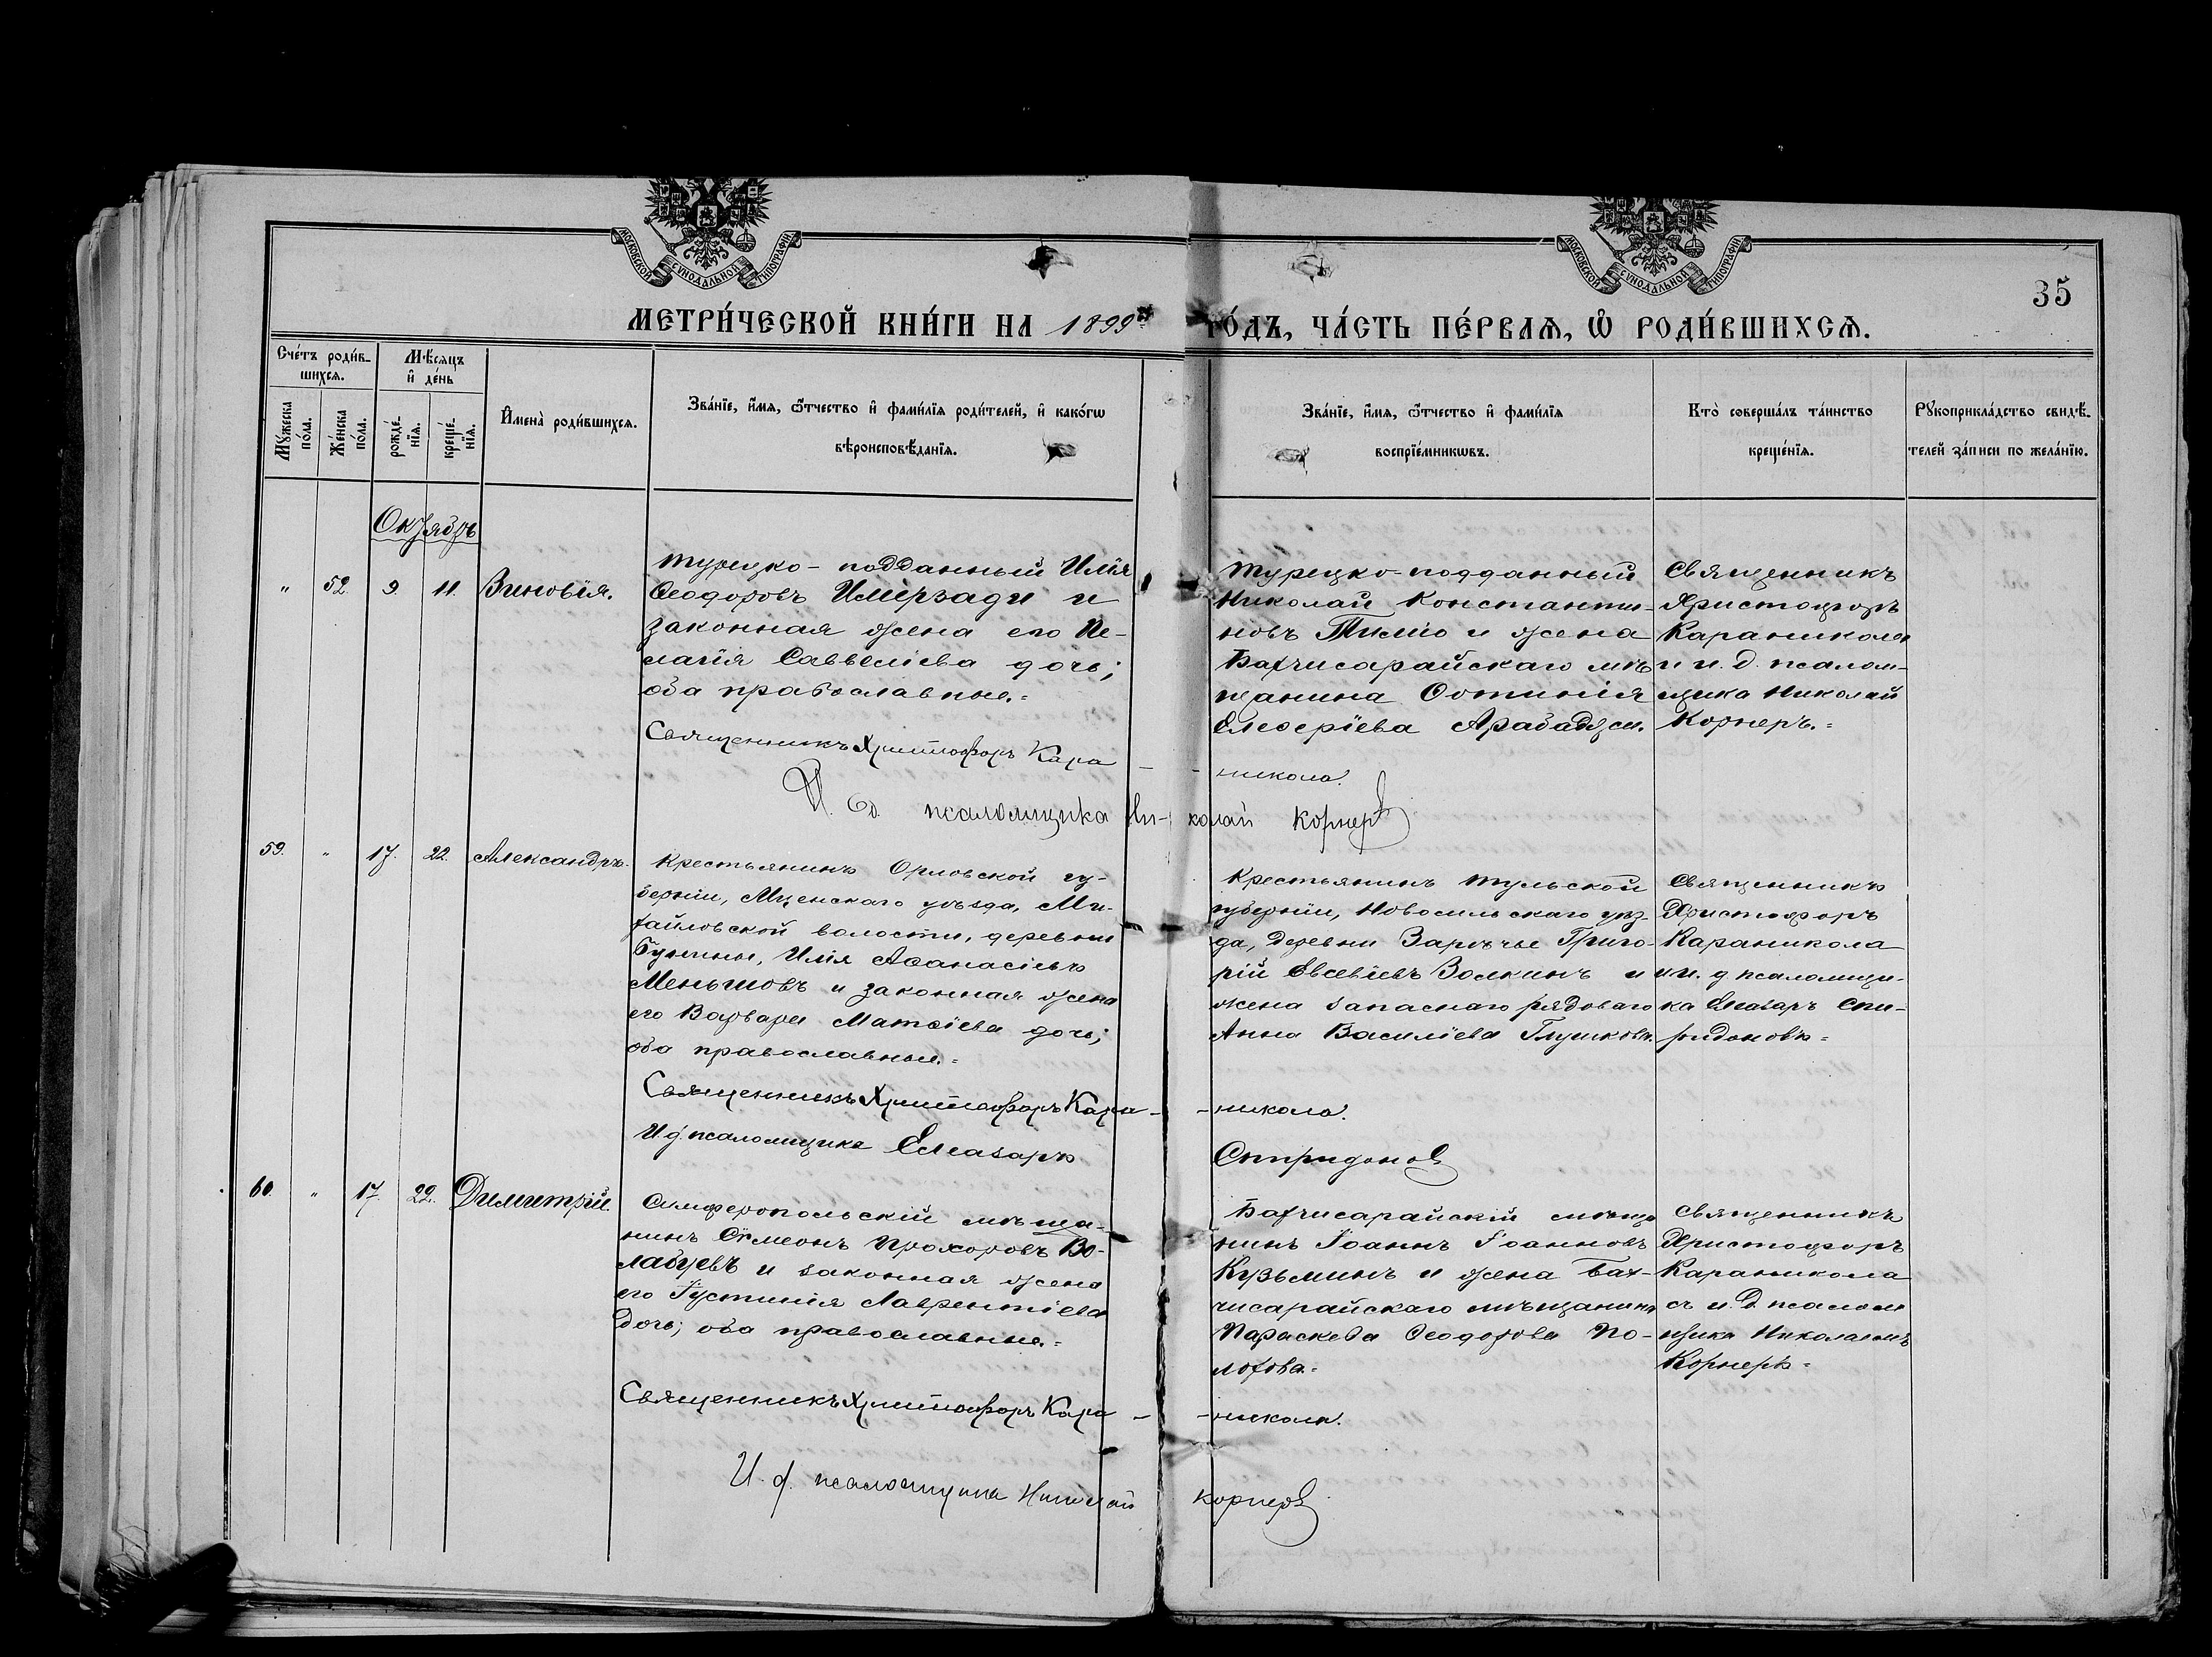 МОСКОВСКОЙ СѴНОДАЛЬНОЙ ТИПОГРАФІИ
МОСКОВСКОЙ СѴНОДАЛЬНОЙ ТИПОГРАФІИ
35
МЕТРИ́ЧЕСКОЙ КНИ́ГИ НА 1899 ГО́ДЪ, ЧА́СТЬ ПЕ́РВАѦ, Ѡ РОДИ́ВШИХСѦ.
Сче́тъ роди́в-
шихсѧ.
Мꙋжеска по́ла.
Же́нска по́ла.
Мѣ́сѧцъ
и҆ де́нь
рожде́-
нїѧ.
креще́-
нїѧ.
И҆мена̀ роди́вшихсѧ.
Зва́нїе, и҆́мѧ, ѻ҆́тчество и҆ фами́лїѧ роди́телей, и҆ како́гѡ
вѣроисповѣ́данїѧ.
Зва́нїе, и҆́мѧ, ѻ҆́тчество и҆ фами́лїѧ
воспрїе́мникѡвъ.
Кто̀ соверша́лъ та́инство
креще́нїѧ.
Рꙋкоприкла́дство свидѣ́-
телей за́писи по жела́нїю.
Октябрь
" 52. 9. 11. Зиновія.
Турецко-подданный Илія
Ѳеодоровъ Имірзади и
законная жена его Пе-
лагія Саввеліева дочь;
оба православные.=
Турецко-подданный
Николай Константи-
новъ Тиміо и жена
Бахчисарайскаго мѣ-
щанина Фотинія
Елеѳеріева Арабаджи.
Священникъ
Христофоръ
Караникола
и и. д. псалом-
щика Николай
Корнеръ.=
Священникъ Христофоръ Кара-
-никола.
И. д. псаломщика Ни-колай Корнеръ
59. " 17. 22. Александръ.
Крестьянинъ Орловской гу-
берніи, Мценскаго уѣзда, Ми-
хайловской волости, деревни
Бунины, Илія Аѳанасіевъ
Меньшовъ и законная жена
его Варвара Матѳіева дочь;
оба православные.=
Крестьянинъ Тульской
губерніи, Новосильскаго уѣз-
да, деревни Зарѣчье Григо-
рій Евсевіевъ Волкинъ и
жена запаснаго рядоваго
Анна Василіева Глушкова.
Священникъ
Христофоръ
Караникола
и и. д псаломщи-
ка Елеазаръ Спи-
ридоновъ=
Священникъ Христофоръ Кара-
-никола.
И д. псаломщика Елеазаръ
Спиридоновъ
60. " 17. 22. Димитрій.
Симферопольскій мѣща-
нинъ Сѵмеонъ Прохоровъ Во-
лабуевъ и законная жена
его Іустинія Лаврентіева
дочь; оба православные.=
Бахчисарайскій мѣща
нинъ Іоаннъ Іоанновъ
Кузьминъ и жена Бах-
чисарайскаго мѣщанина
Параскева Ѳеодорова По-
лохова.=
Священникъ
Христофоръ
Караникола
съ и. д. псалом
щика Николаемъ
Корнеръ=
Священникъ Христофоръ Кара-
-никола.
И. д. псаломщика Николай
Корнеръ